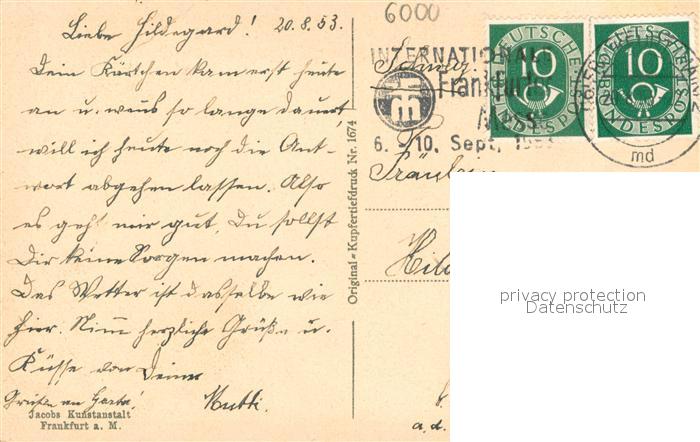 Liebe Hildegard! 20.8.53.
Dein Kärtchen kam erst heute
an u. weils so lange dauert,
will ich heute noch die Ant-
wort abgehen lassen. Also
es geht mir gut, Du sollst
Dir keine Sorgen machen.
Das Wetter ist dasselbe wie
hier. Nimm herzliche Grüße u.
Küsse von Deiner
Mutti.
Grüße an Herta!
Jacobs Kunstanstalt
Frankfurt a. M.
Original-Kupfertiefdruck Nr. 1674
6000
INTERNATIONALE
Frankfurter
6. - 10. Sept. 1953
DEUTSCHE
10
BUNDESPOST
DEUTSCHE
10
BUNDESPOST
md
Fräulein
Hild
a.d.
privacy protection
Datenschutz